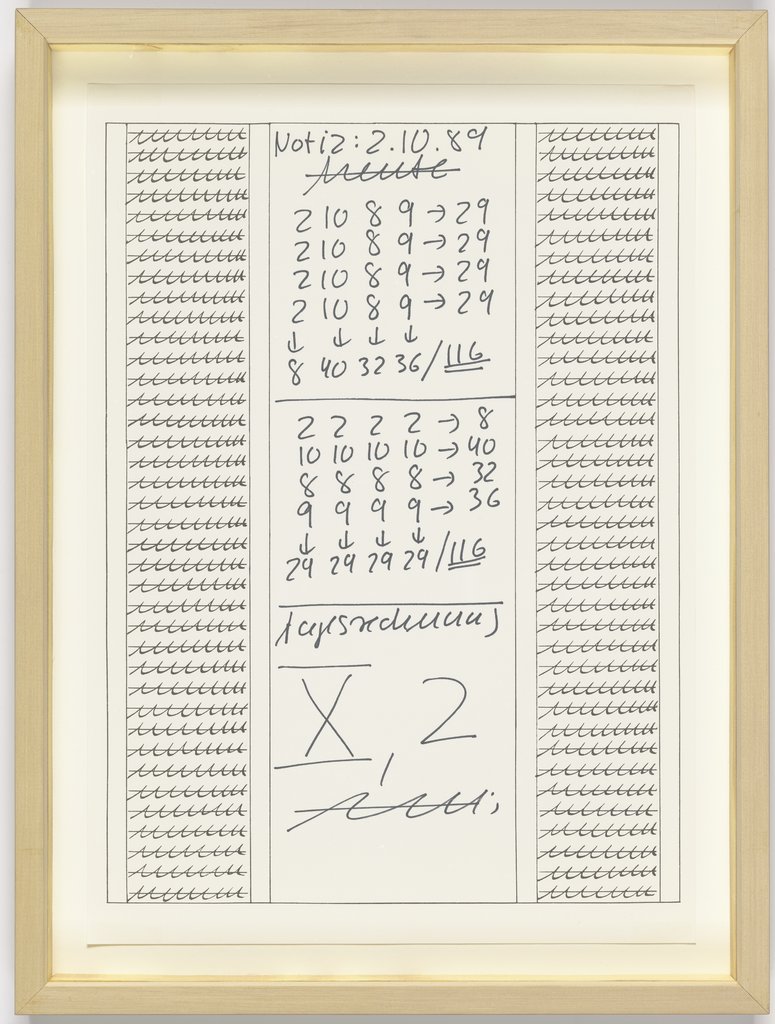 Notiz: 2.10.89
heute
2 10 8 9 → 29
2 10 8 9 → 29
2 10 8 9 → 29
2 10 8 9 → 29
↓ ↓ ↓ ↓
8 40 32 36/116
2 2 2 2 → 8
10 10 10 10 → 40
8 8 8 8 → 32
9 9 9 9 → 36
↓ ↓ ↓ ↓
29 29 29 29/116
Tagesrechnung
X, 2